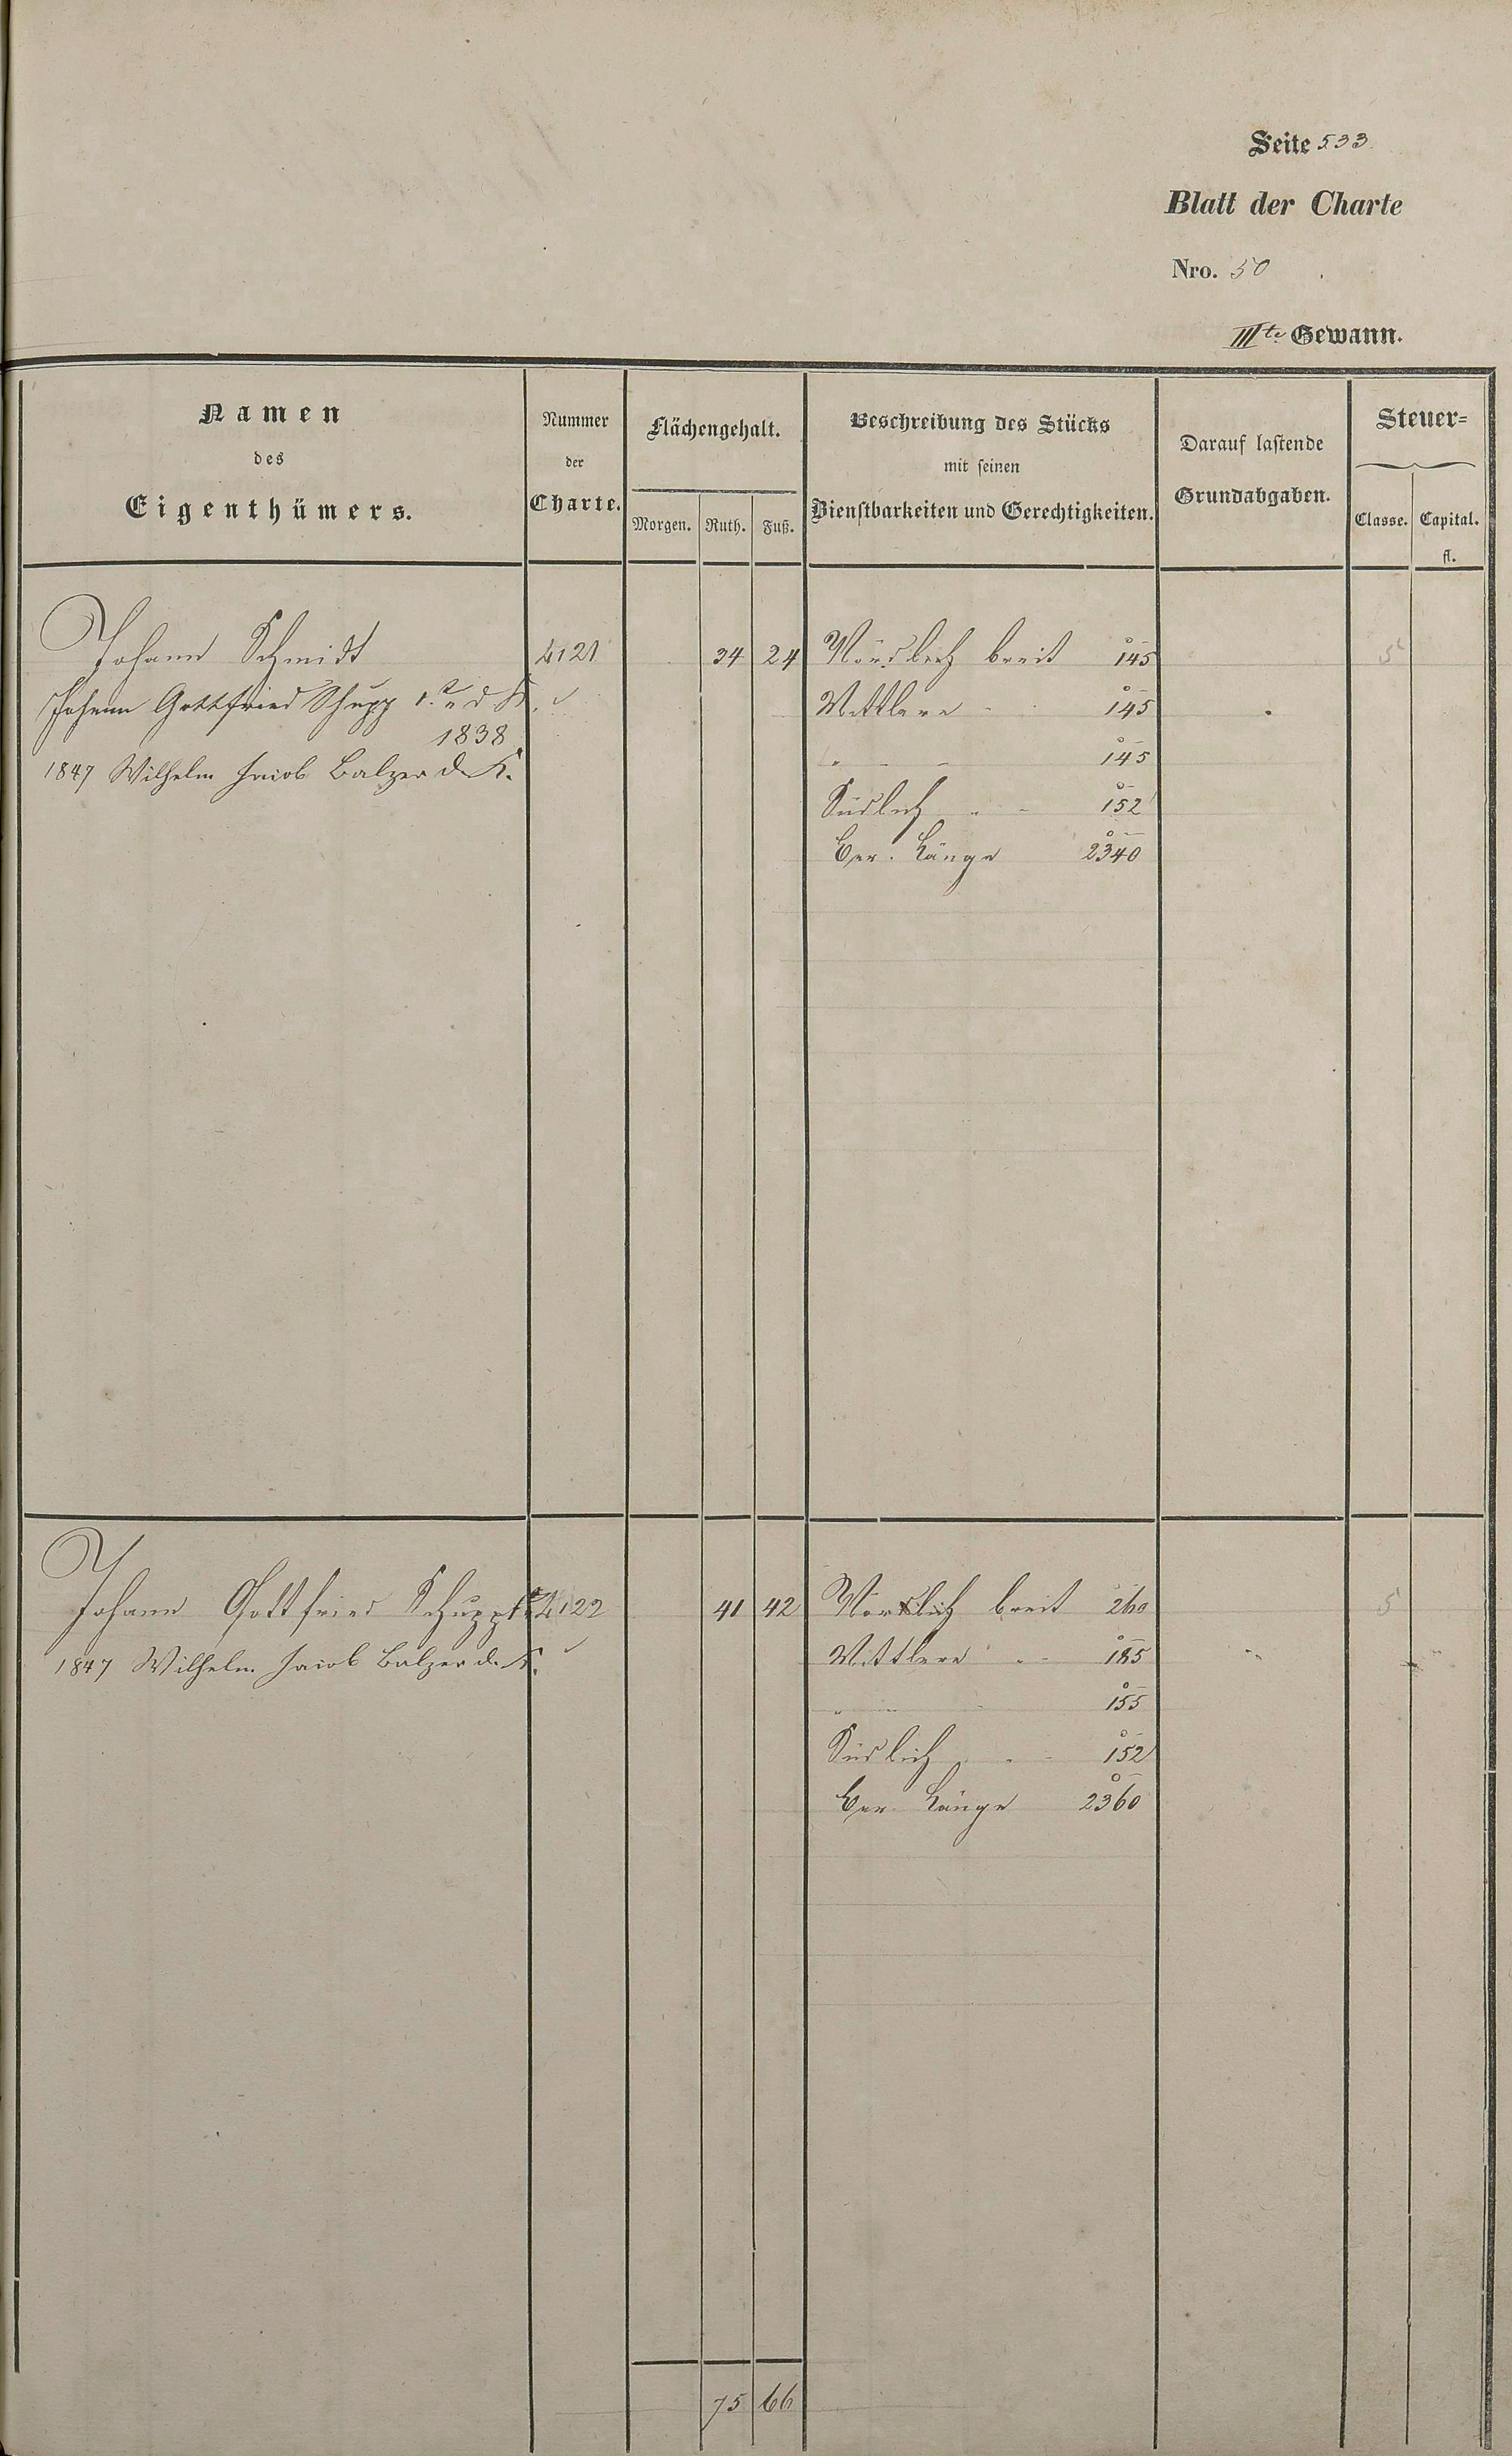 Seite 533
Blatt der Charte
Nro. 50
IIIte Gewann.
Namen des Eigenthümers.
Nummer der Charte.
Flächengehalt.
Morgen. Ruth. Fuß.
Beschreibung des Stücks mit seinen Dienstbarkeiten und Gerechtigkeiten.
Darauf lastende Grundabgaben.
Steuer=
Classe. Capital. fl.
Johann Schmidt 4121 34 24 Nördlich breit 145 5
Johann Gottfried Schupp Mittlere 145
1838 " 145
1847 Wilhelm Jacob Balzer d. K. Südlich 152
Ber. Länge 2340
Johann Gottfried Schupp 4122 41 42 Nördlich breit 260 5
1847 Wilhelm Jacob Balzer d. K. Mittlere 185
" 155
Südlich 152
Ber. Länge 2360
75 66